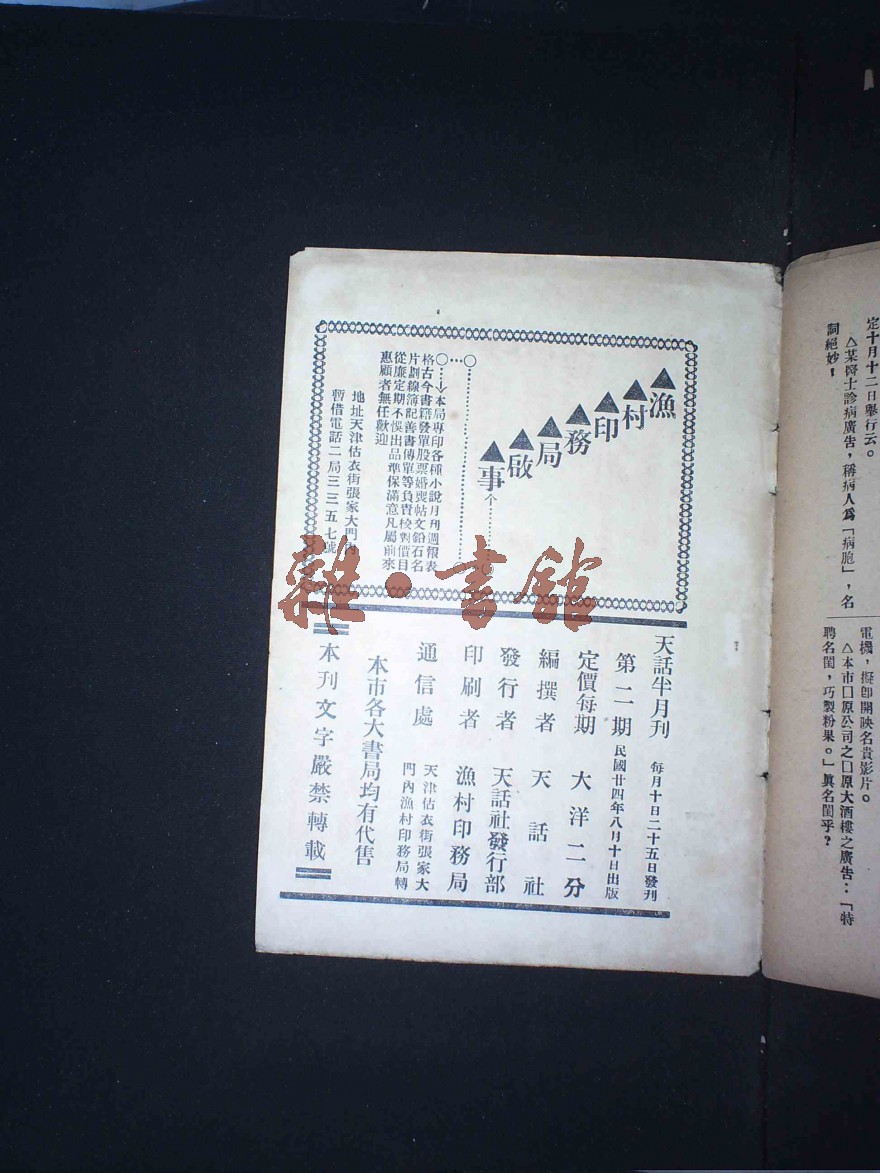 定十月十二日舉行云。
△某醫士診病廣告,稱病人爲「病胞」,名
詞絕妙!
電機,擬卽開映名貴影片。
△本市囗原公司之囗原大酒樓之廣告:「特
聘名閨,巧製粉果。」眞名閨乎?
▲漁▲村▲印▲務▲局▲啟▲事
本局專印各種小說月刊週報表
格古今書籍發單股票婚喪帖文鉛石名
片劃線簿記善書傳單等負責校對價目
從廉定期不悞出品準保滿意凡屬前來
惠顧者無任歡迎
地址天津估衣街張家大門內
暫借電話二局三三五七號
天話半月刊 每月十日二十五日發刊
第二期 民國廿四年八月十日出版
定價每期 大洋二分
編撰者 天話社
發行者 天話社發行部
印刷者 漁村印務局
通信處 天津估衣街張家大
門內漁村印務局轉
本市各大書局均有代售
本刊文字嚴禁轉載
雜·書館